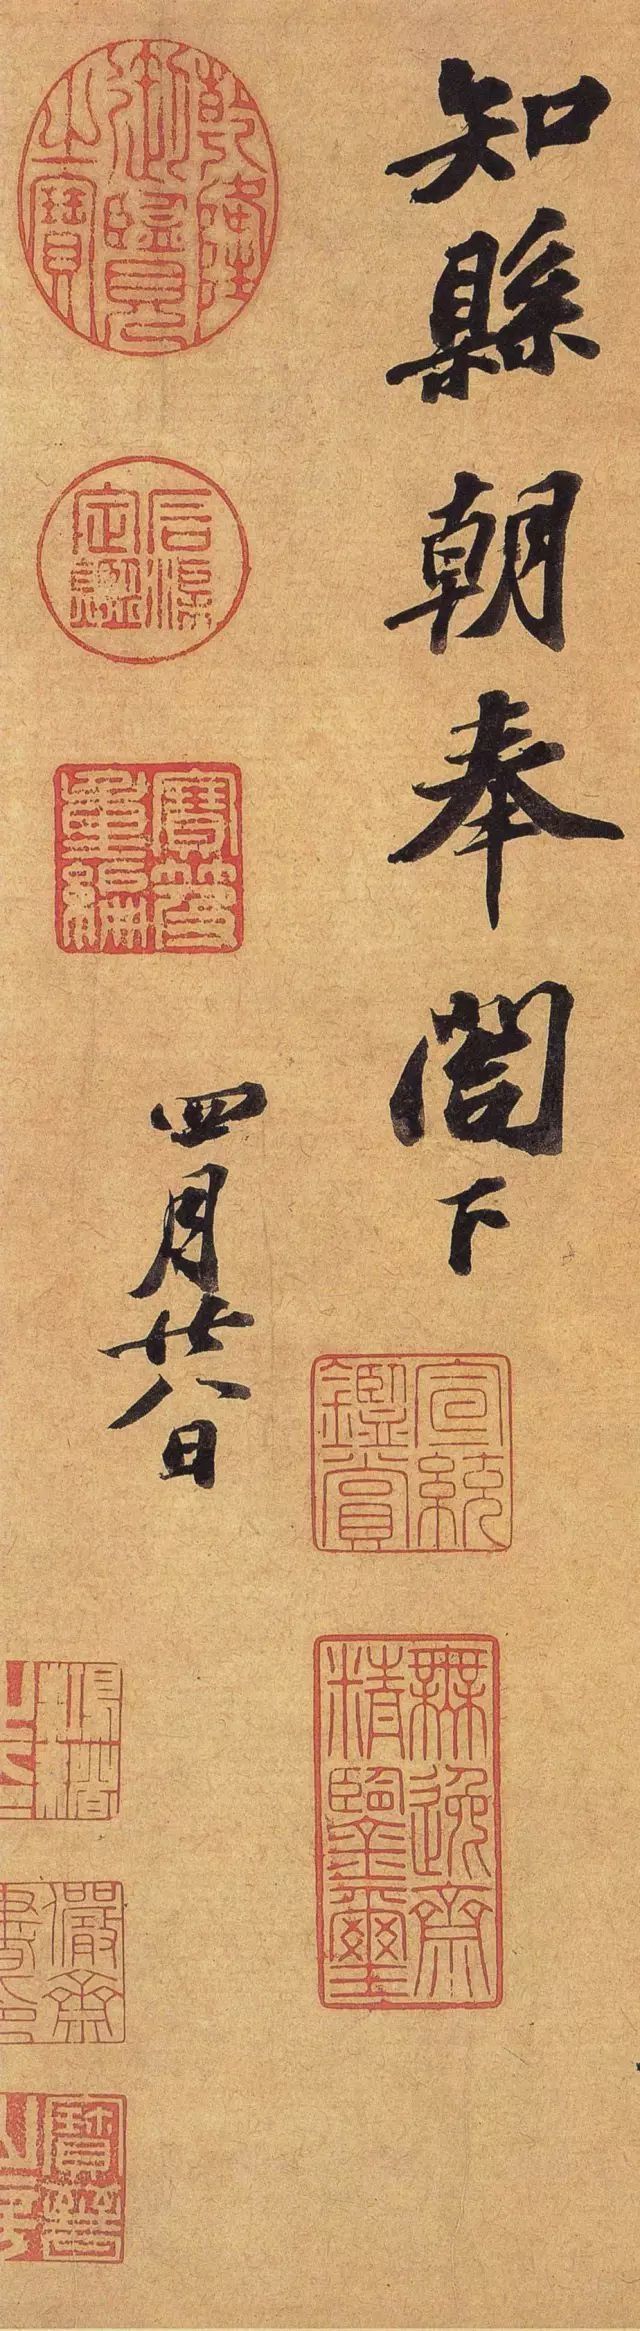 知縣朝奉閤下
宣統鑑賞
無逸齋精鑒璽
四月廿八日
乾隆御覽之寶
石渠定鑑
寶笈重編
儼齋